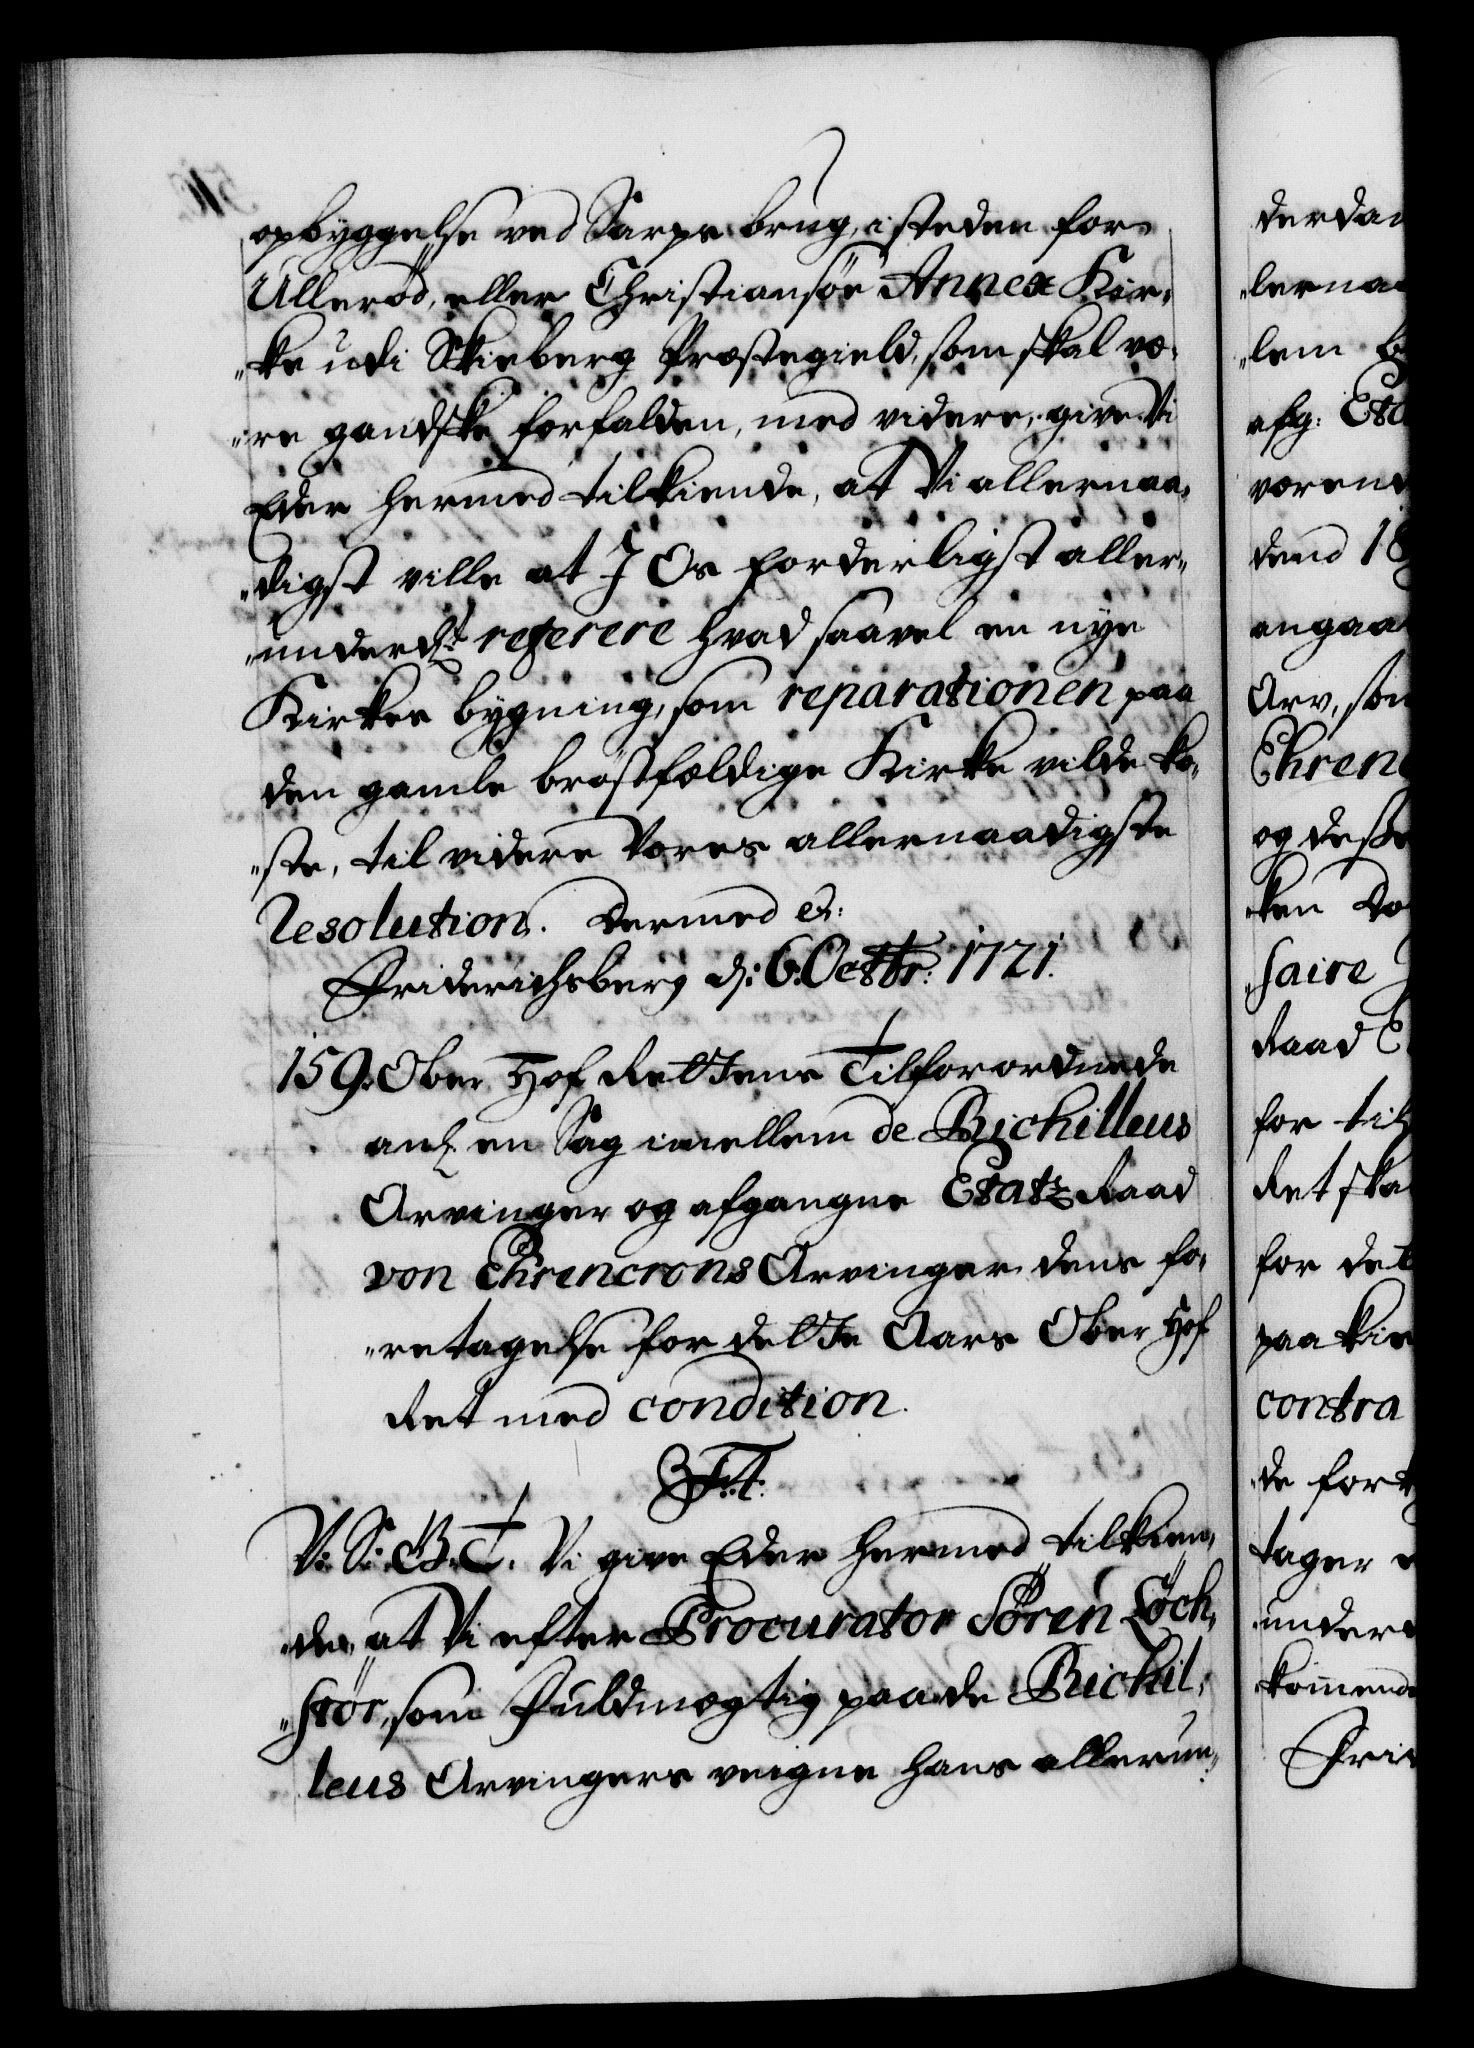 opbyggelse ved Sarps brug, i steden for
Ullerød, eller Christiansøe Annex Kir-
"ke udi Skieberg Præstegield, som skal væ-
"re gandske forfalden, med videre, give Vi
Eder hermed tilkiende, at Vi allernaa-
"digst ville at I Os forderligst aller-
"underd:t referere hvad saavel en nye
Kirkes bygning, som reparationen paa
den gamle brøstfældige Kirke vilde ko-
"ste, til videre Vores allernaadigste
Resolution. Dermed etc:
Friderichsberg d: 6. Octbr: 1721.
159. Ober Hof Rettens Tilforordnede
anl: en Sag imellem de Richilleus
Arvinger og afgangne Etatz Raad
von Ehrencrons Arvinger dens fo-
"retagelse for dette Aars Ober Hof
Ret med condition.
F: 4.
V: S: G: T. Vi give Eder hermed tilkien-
"de, at Vi efter Procurator Søren Loch-
"stør, som Fuldmægtig paa de Richil-
leus Arvingers veigne hans allerun-
derdan
"lernaa
"lem
afg: Eta
værend
dend 18
angaa
Arv, som
Ehren
og desse
"ken
"saire
Raad
for til
Ret ska
for det
paa kie
contra
de fort
tager
under
kommend
Frid